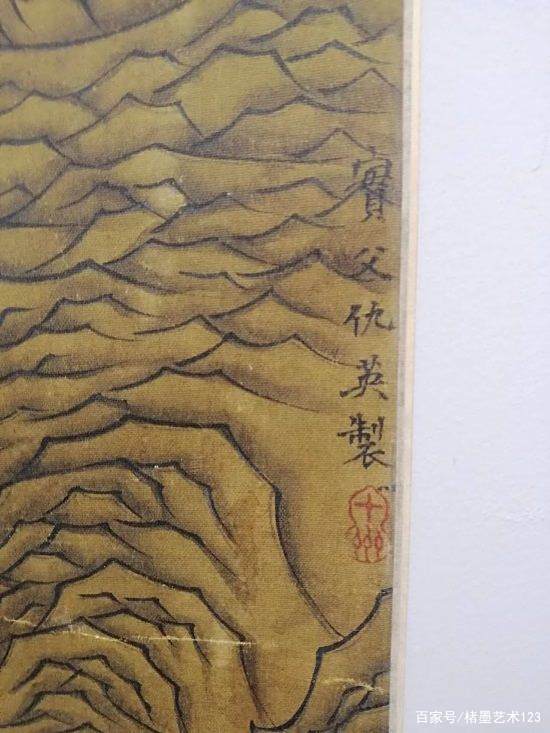 實父仇英製
十州
百家号/楮墨艺术123